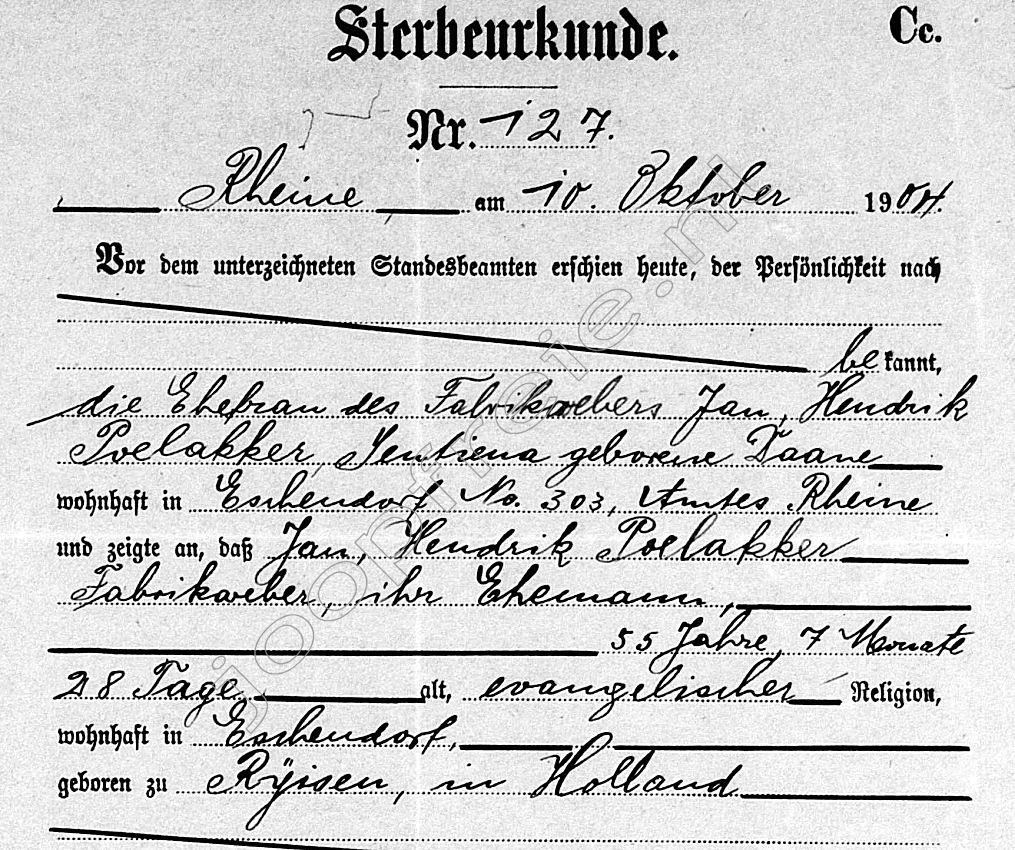 Sterbeurkunde.
Cc.
Nr. 127.
Rheine am 10. Oktober 1904.
Vor dem unterzeichneten Standesbeamten erschien heute, der Persönlichkeit nach
bekannt,
die Ehefrau des Fabrikwebers Jan, Hendrik
Poelakker, Jentiena geborene Daane
wohnhaft in Eschendorf No. 303, Amtes Rheine
und zeigte an, daß Jan, Hendrik Poelakker
Fabrikweber, ihr Ehemann,
55 Jahre, 7 Monate
28 Tage alt, evangelischer Religion,
wohnhaft in Eschendorf,
geboren zu Ryisen, in Holland
joopfreie.nl